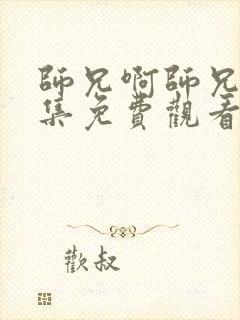 師兄啊師兄
集免費觀看
歡叔